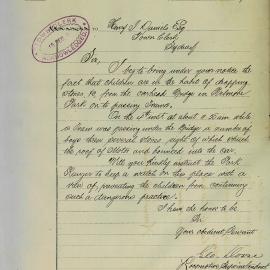 TOWN CLERK
ACKNOWLEDGED
Henry S. Daniels Esq
Town Clerk
Sydney
Sir,
I beg to bring under your notice the
fact that children are in the habit of dropping
stones &c from the overhead Bridge in Belmore
Park on to passing Trams.
On the inst at about 8.30 am while
a Tram was passing under the Bridge a number of
boys threw several stones, eight of which struck
the roof of and bounced into the Car.
Will you kindly instruct the Park
Ranger to keep a watch on this place with a
view of preventing the children from continuing
such a dangerous practice.
I have the honor to be
Sir
Your obedient Servant
Geo.